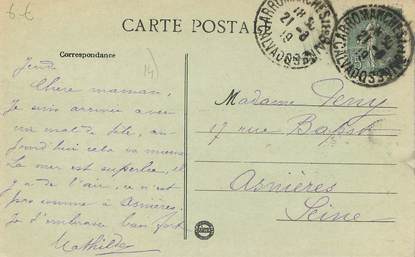 6 €
CARTE POSTALE
ARROMANCHES
CALVADOS
21-8
19
ARROMANCHES
CALVADOS
Correspondance
14)
Jeudi
Chère maman,
Je suis arrivée avec
un mal de tête, au-
jourd'hui cela va mieux
La mer est superbe, il
y a de l'air, ce n'est
pas comme à Asnières.
Je t'embrasse bien fort
Mathilde
Madame Peny
17 rue
Asnières
Seine